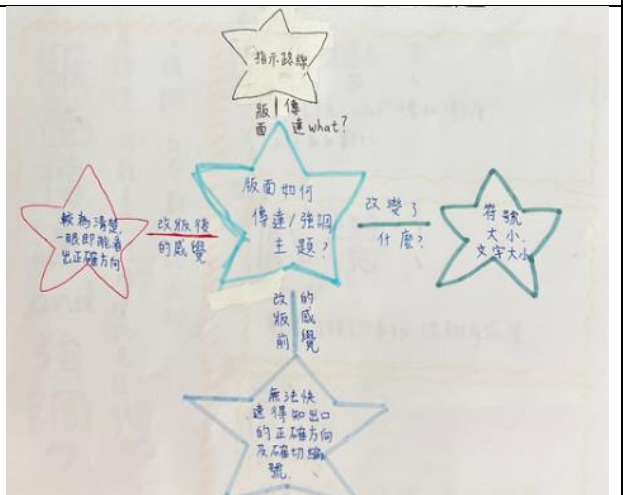 指示路線
版面
傳達what?
版面如何
傳達/強調
主題?
較為清楚,
一眼即能看
出正確方向
改版後
的感覺
改變了
什麼?
符號
大小、
文字大小
改版前
的感覺
無法快
速得知出口
的正確方向
及確切編
號.